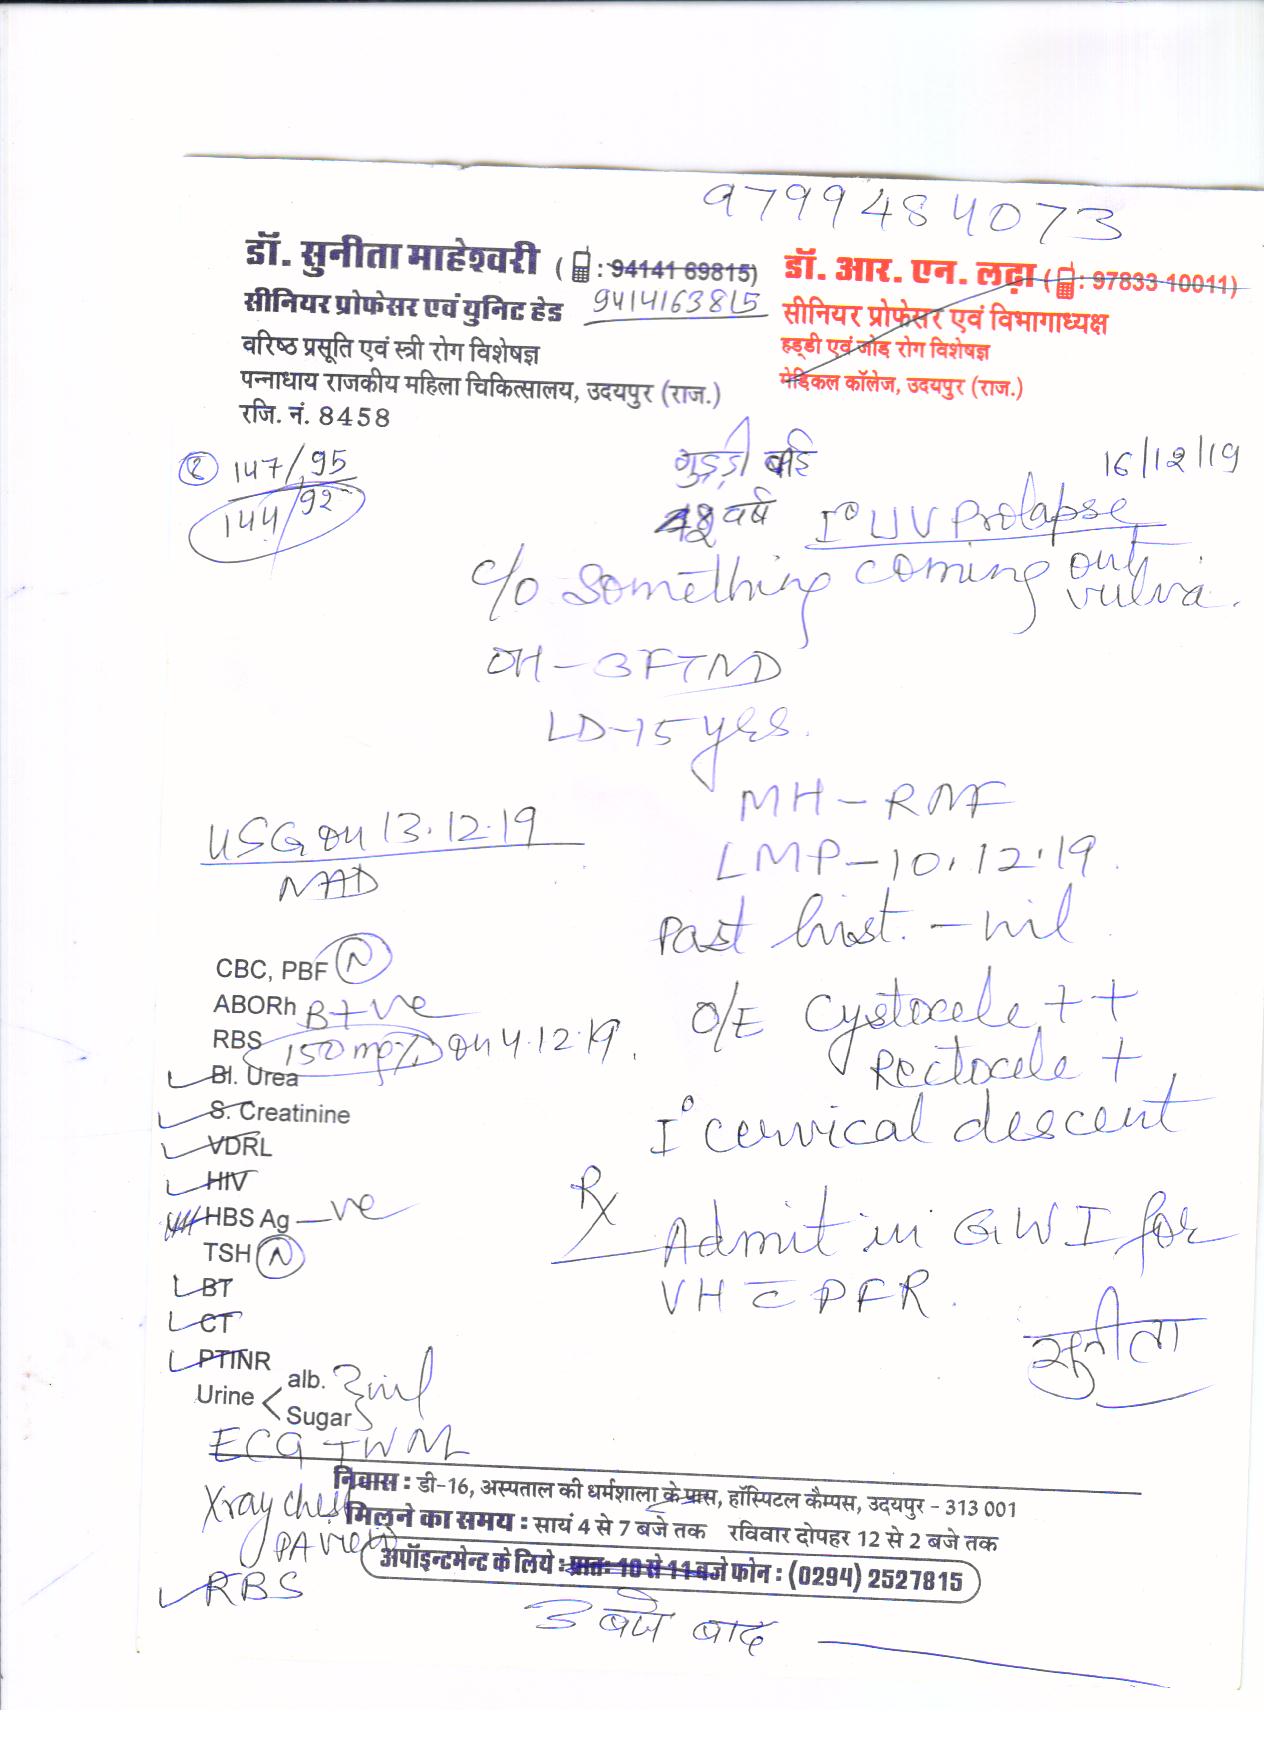 9799484073
डॉ. सुनीता माहेश्वरी ( : 94141 69815)
9414163815
सीनियर प्रोफेसर एवं युनिट हेड
वरिष्ठ प्रसूति एवं स्त्री रोग विशेषज्ञ
पन्नाधाय राजकीय महिला चिकित्सालय, उदयपुर (राज.)
रजि. नं. 8458
डॉ. आर. एन. लढ़ा ( : 97833 10011)
सीनियर प्रोफेसर एवं विभागाध्यक्ष
हड्डी एवं जोड़ रोग विशेषज्ञ
मेडिकल कॉलेज, उदयपुर (राज.)
147/95
144/92
गुड्ड़ी बाई
16/12/19
वर्ष I° UV Prolapse
c/o something coming out
vulva.
OH - 3FTND
LD - 15 yrs.
MH - RMF
LMP - 10.12.19.
Past hist. - nil.
O/E Cystocele ++
Rectocele +
I° cervical descent
Rx
Admit in GW I for
VH c̄ PFR.
सुनीता
USG on 13.12.19
NAD
CBC, PBF N
ABORh B+ve
RBS 150 mg% on 4.12.19.
Bl. Urea
S. Creatinine
VDRL
HIV
HBS Ag -ve
TSH N
BT
CT
PTINR
Urine < alb. Sugar } nil
ECG
Xray chest
PA view
RBS
निवास : डी-16, अस्पताल की धर्मशाला के पास, हॉस्पिटल कैम्पस, उदयपुर - 313 001
मिलने का समय : सायं 4 से 7 बजे तक रविवार दोपहर 12 से 2 बजे तक
अपॉइन्टमेन्ट के लिये : प्रातः 10 से 11 बजे फोन : (0294) 2527815
3 बजे बाद